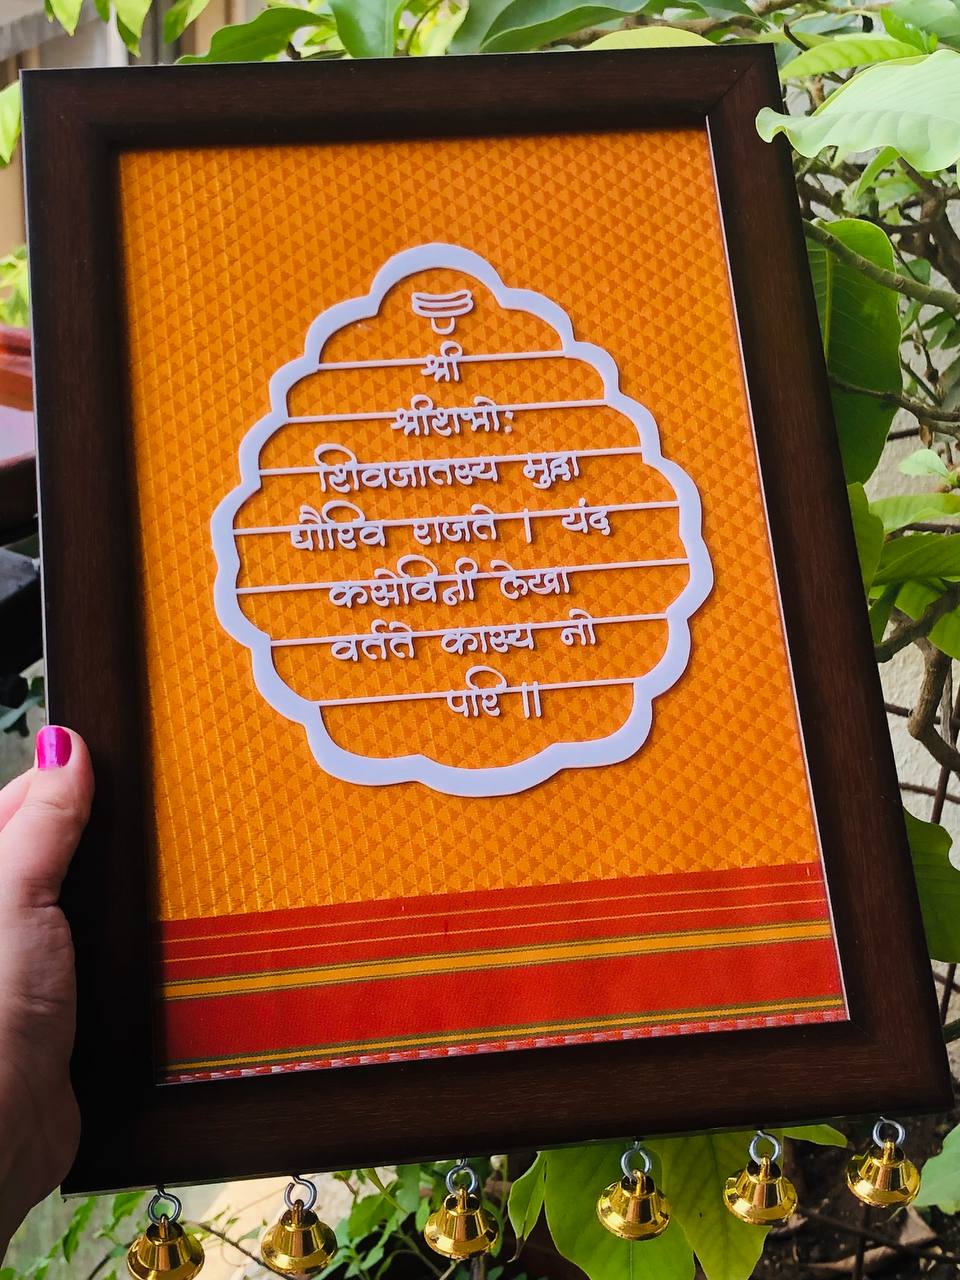 श्री
श्रीशम्भोः
शिवजातस्य मुद्रा
द्यौरिव राजते । यंद
कसेविनी लेखा
वर्तते कास्य नो
परि ॥